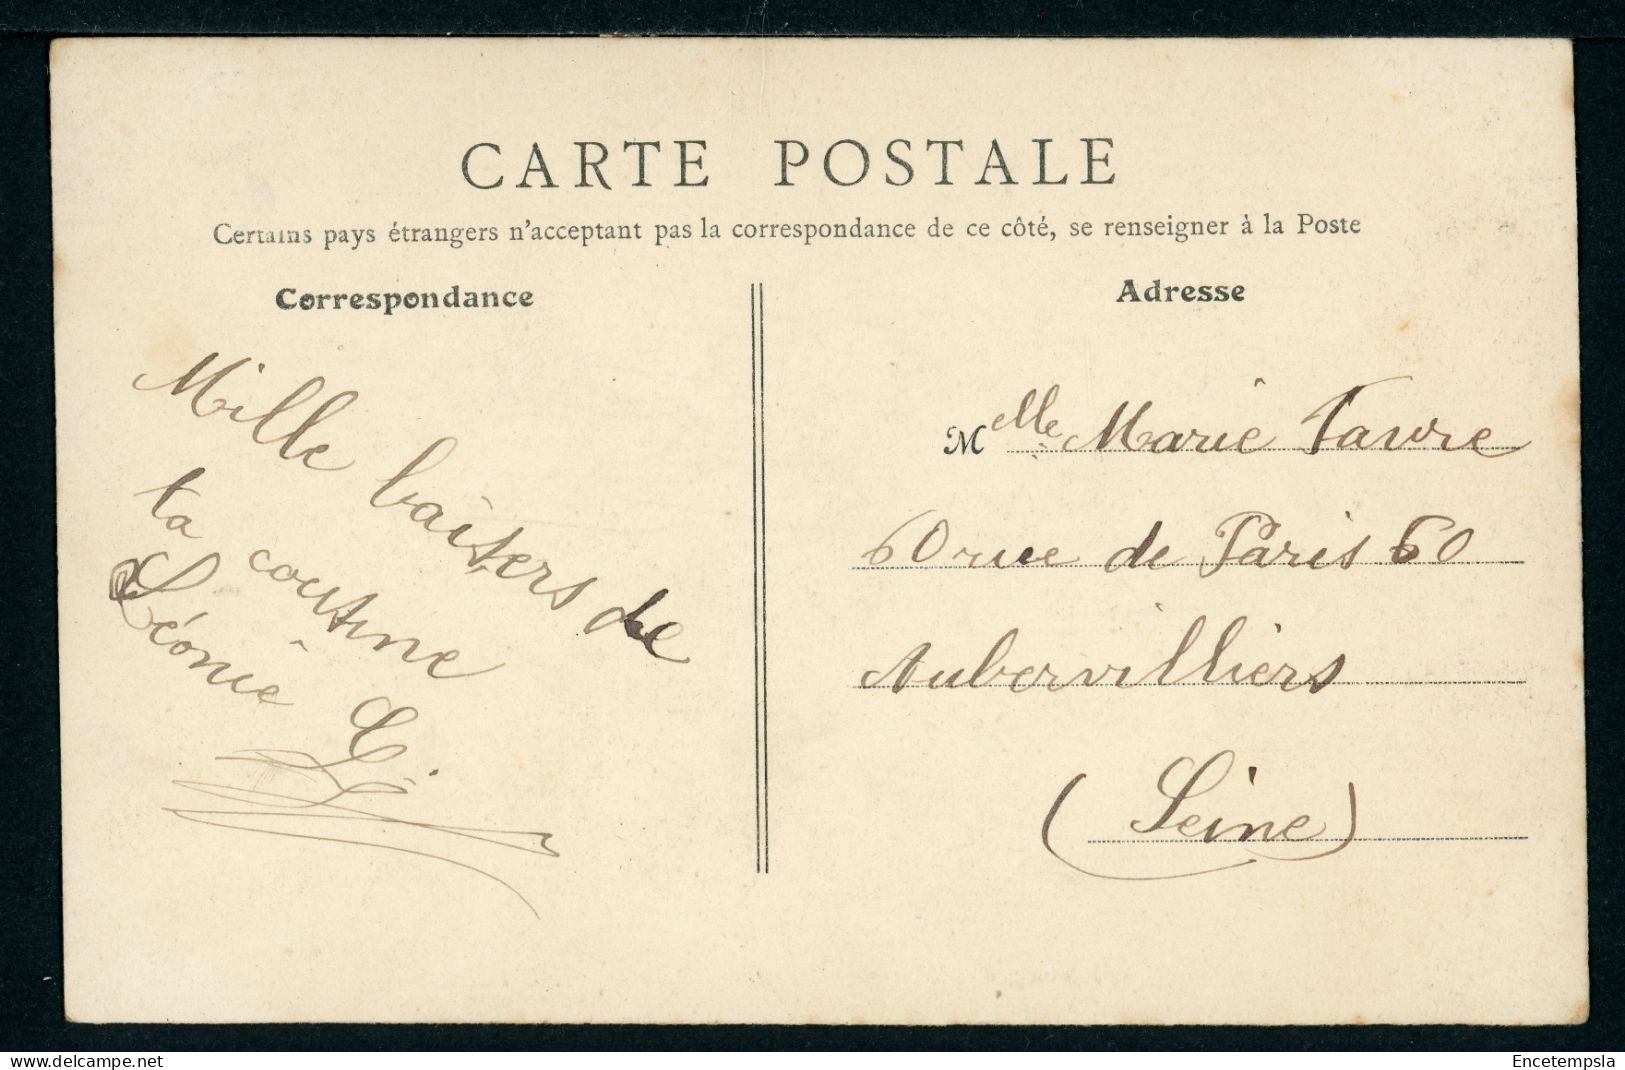 CARTE POSTALE
Certains pays étrangers n'acceptant pas la correspondance de ce côté, se renseigner à la Poste
Correspondance
Mille baisers de
ta cousine
Léonie
Adresse
Melle Marie Favre
60 rue de Paris 60
Aubervilliers
(Seine)
www.delcampe.net
Encetempsla